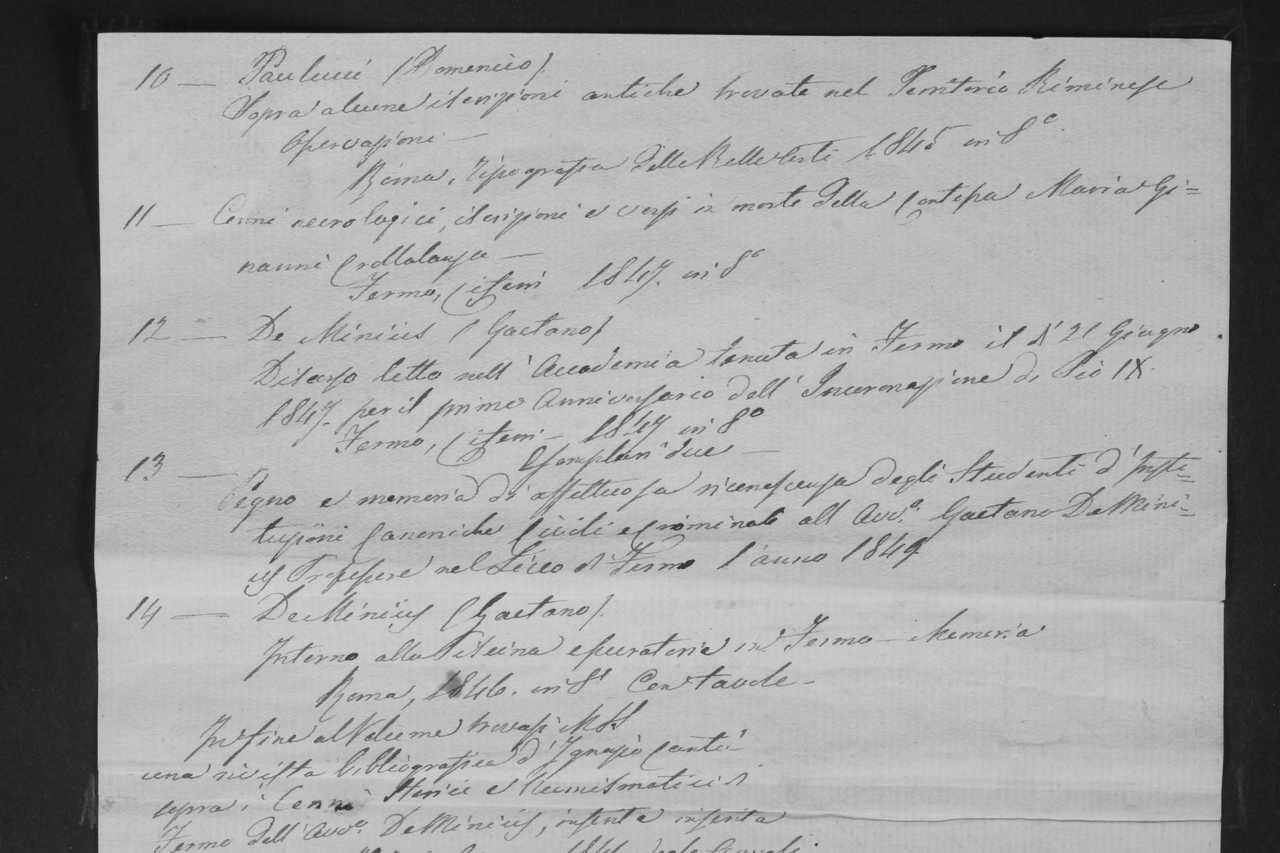 10 — Paulucci (Domenico).
Sopra alcune iscrizioni antiche trovate nel Territorio Riminese
Osservazioni —
Roma, Tipografia delle Belle Arti 1845 in 8°
11 — Cenni necrologici, iscrizioni e versi in morte della Contessa Maria Gi=
nanni Crollalanza —
Fermo, Ciferri 1847. in 8°
12 — De Minicis (Gaetano)
Discorso letto nell' Accademia tenuta in Fermo il dì 21 Giugno
1847. per il primo Anniversario dell' Incoronazione di Pio IX.
Fermo, Ciferri — 1847 in 8°
Esemplari due —
13 — Pegno e memoria di affettuosa riconoscenza degli Studenti d' Isti=
tuzioni Canoniche Civili e Criminali all' Avv.° Gaetano De Mini=
cis Professore nel Liceo di Fermo l'anno 1849
14 — De Minicis (Gaetano).
Intorno alla Piscina epuratoria in Fermo — Memoria
Roma, 1846. in 8° Con tavole —
In fine al Volume trovasi MSS
una rivista bibliografica d' Ignazio Cantù
sopra i Cenni Storici e Numismatici di
Fermo dell' Avv.° De Minicis, inserita inserita